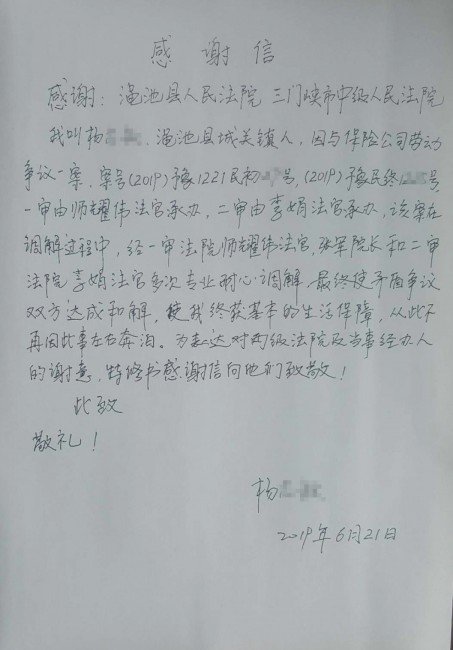 感谢信
感谢：渑池县人民法院 三门峡市中级人民法院
我叫杨、渑池县城关镇人，因与保险公司劳动
争议一案，案号(2019)豫1221民初号，(2019)豫民终1号
一审由师耀伟法官承办，二审由李娟法官承办，该案在
调解过程中，经一审法院师耀伟法官，张军院长和二审
法院李娟法官多次专业耐心调解，最终使矛盾争议
双方达成和解，使我终获基本的生活保障，从此不
再因此事左右奔泊。为表达对两级法院及当事经办人
的谢意，特修书感谢信向他们致敬！
此致
敬礼！
杨
2019年6月21日